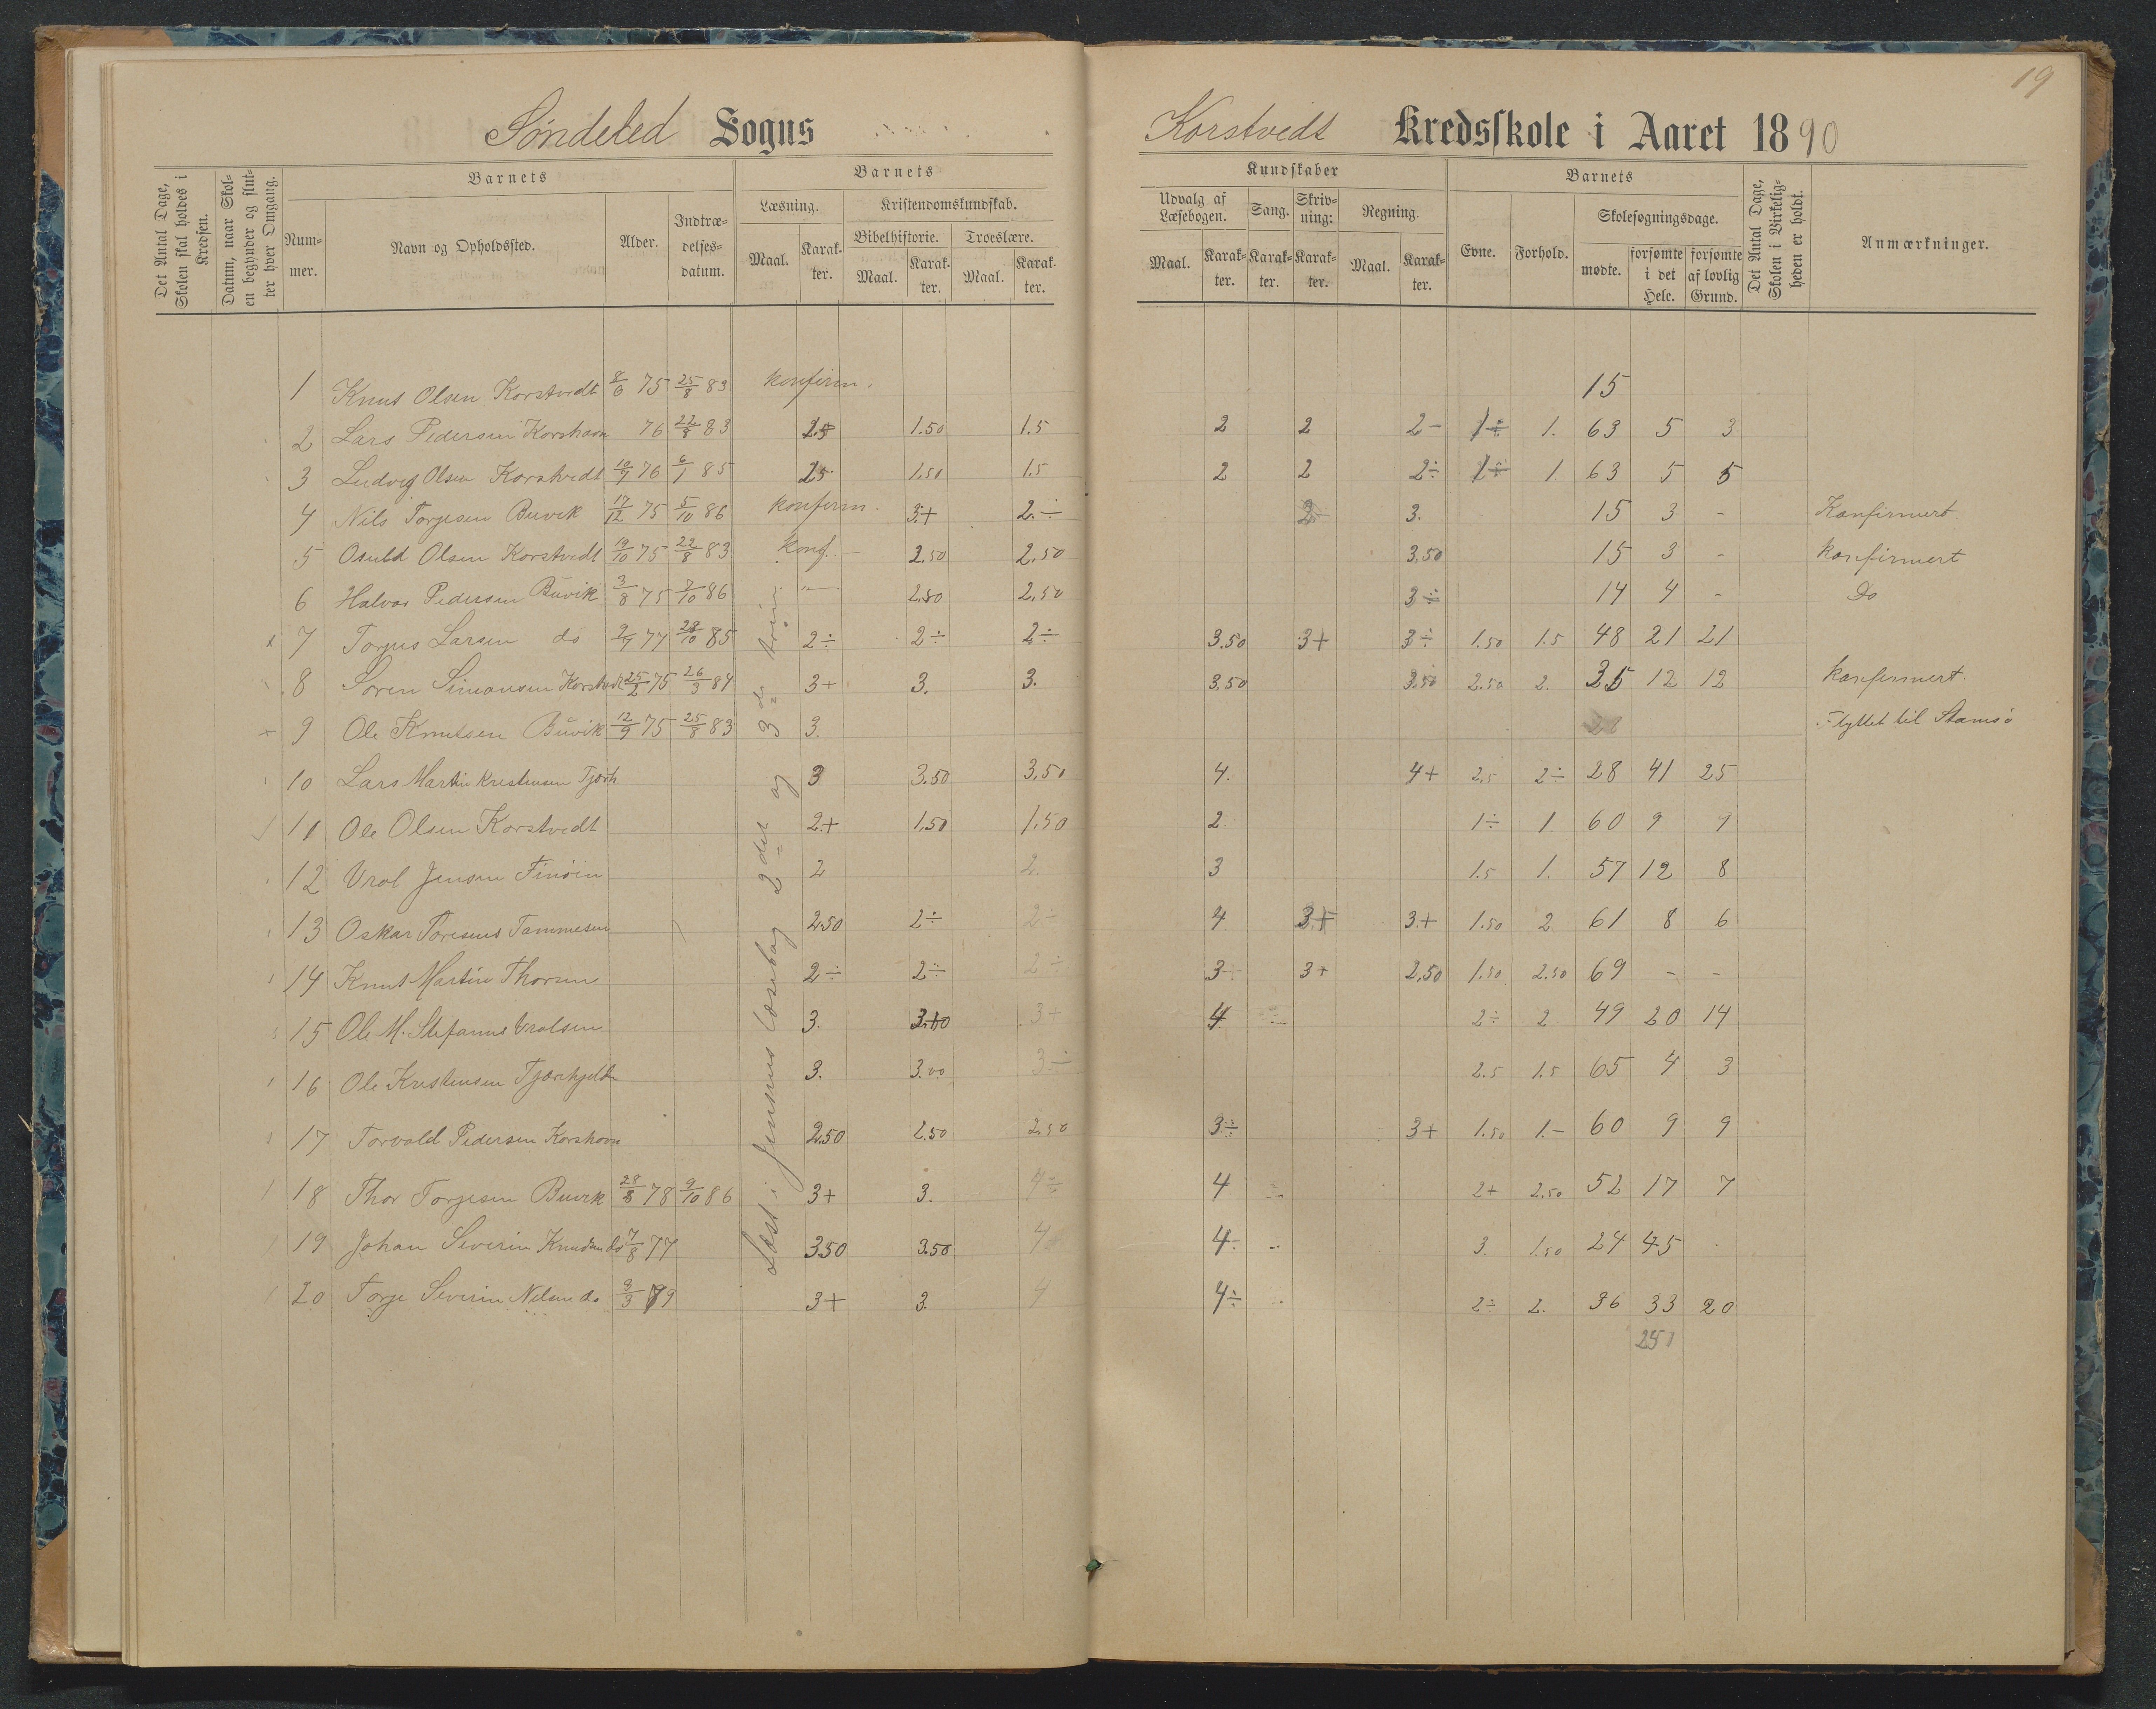 19
Søndeled Sogns
Korstvedt Kredsskole i Aaret 1890
Det Antal Dage, Skolen skal holdes i Kredsen.
Datum, naar Skolen begynder og slutter hver Omgang.
Barnets
Nummer.
Navn og Opholdssted.
Alder.
Indtrædelsesdatum.
Barnets
Læsning.
Maal.
Karakter.
Kristendomskundskab.
Bibelhistorie.
Maal.
Karakter.
Troeslære.
Maal.
Karakter.
Kundskaber
Udvalg af Læsebogen.
Maal.
Karakter.
Sang.
Karakter.
Skrivning:
Karakter.
Regning.
Maal.
Karakter.
Barnets
Evne.
Forhold.
Skolesøgningsdage.
mødte.
forsømte i det Hele.
forsømte af lovlig Grund.
Det Antal Dage, Skolen i Virkeligheden er holdt.
Anmærkninger.
1 Knut Olsen Korstvedt 8/6 75 25/8 83 konfirm. 15
2 Lars Pedersen Korshavn 76 22/8 83 2.5 1.50 1.5 2 2 2- 1÷ 1. 63 5 3
3 Ludvig Olsen Korstvedt 10/9 76 6/1 85 2.5 1.50 1.5 2 2 2÷ 1÷ 1. 63 5 5
4 Nils Torjesen Buvik 17/12 75 5/10 86 konfirm. 3+ 2.÷ 2 3. 15 3 - Konfirmert
5 Osuld Olsen Korstvedt 19/10 75 22/8 83 konf. - 2.50 2.50 3,50 15 3 - konfirmert
6 Halvor Pedersen Buvik 3/8 75 7/10 86 " 2.50 2.50 3÷ 14 4 - Do
7 Torjus Larsen do 9/9 77 28/10 85 2÷ 2÷ 2÷ 3.50 3+ 3÷ 1.50 1.5 48 21 21
8 Søren Simonsen Korstvedt 25/2 75 26/3 84 3+ 3. 3. 3.50 3.50 2.50 2. 35 12 12 konfirmert.
9 Ole Knutsen Buvik 12/9 75 25/8 83 3. Flyttet til Stamsø
10 Lars Martin Kristensen Tjørh 3 3.50 3,50 4. 4+ 2.5 2÷ 28 41 25
11 Ole Olsen Korstvedt 2+ 1,50 1,50 2. 1÷ 1. 60 9 9
12 Vrol Jensen Finøen 2 2. 3 1.5 1. 57 12 8
13 Oskar Toresius Tammesen 2.50 2÷ 2÷ 4 3+ 3+ 1.50 2 61 8 6
14 Knut Martin Thorsen 2÷ 2÷ 2÷ 3+ 3+ 2,50 1.50 2.50 69 - -
15 Ole M. Stefanus Vrolsen 3. 3+ 4 2÷ 2 49 20 14
16 Ole Kristensen Tjørhjeld 3. 3.00 3÷ 2.5 1.5 65 4 3
17 Torvald Pedersen Korshavn 2.50 2.50 2.50 3÷ 3+ 1.50 1.- 60 9 9
18 Thor Torjesen Buvik 28/8 78 9/10 86 3+ 3. 4÷ 4 2+ 2.50 52 17 7
19 Johan Severin Knudsen do 7/8 77 3.50 3.50 4 4÷ 3. 1.50 24 45
20 Torje Severin Nilsen do 3/3 79 3+ 3. 4 4÷ 2÷ 2. 36 33 20
251
Læst i Jensens læsebog 2det og 3de trin.